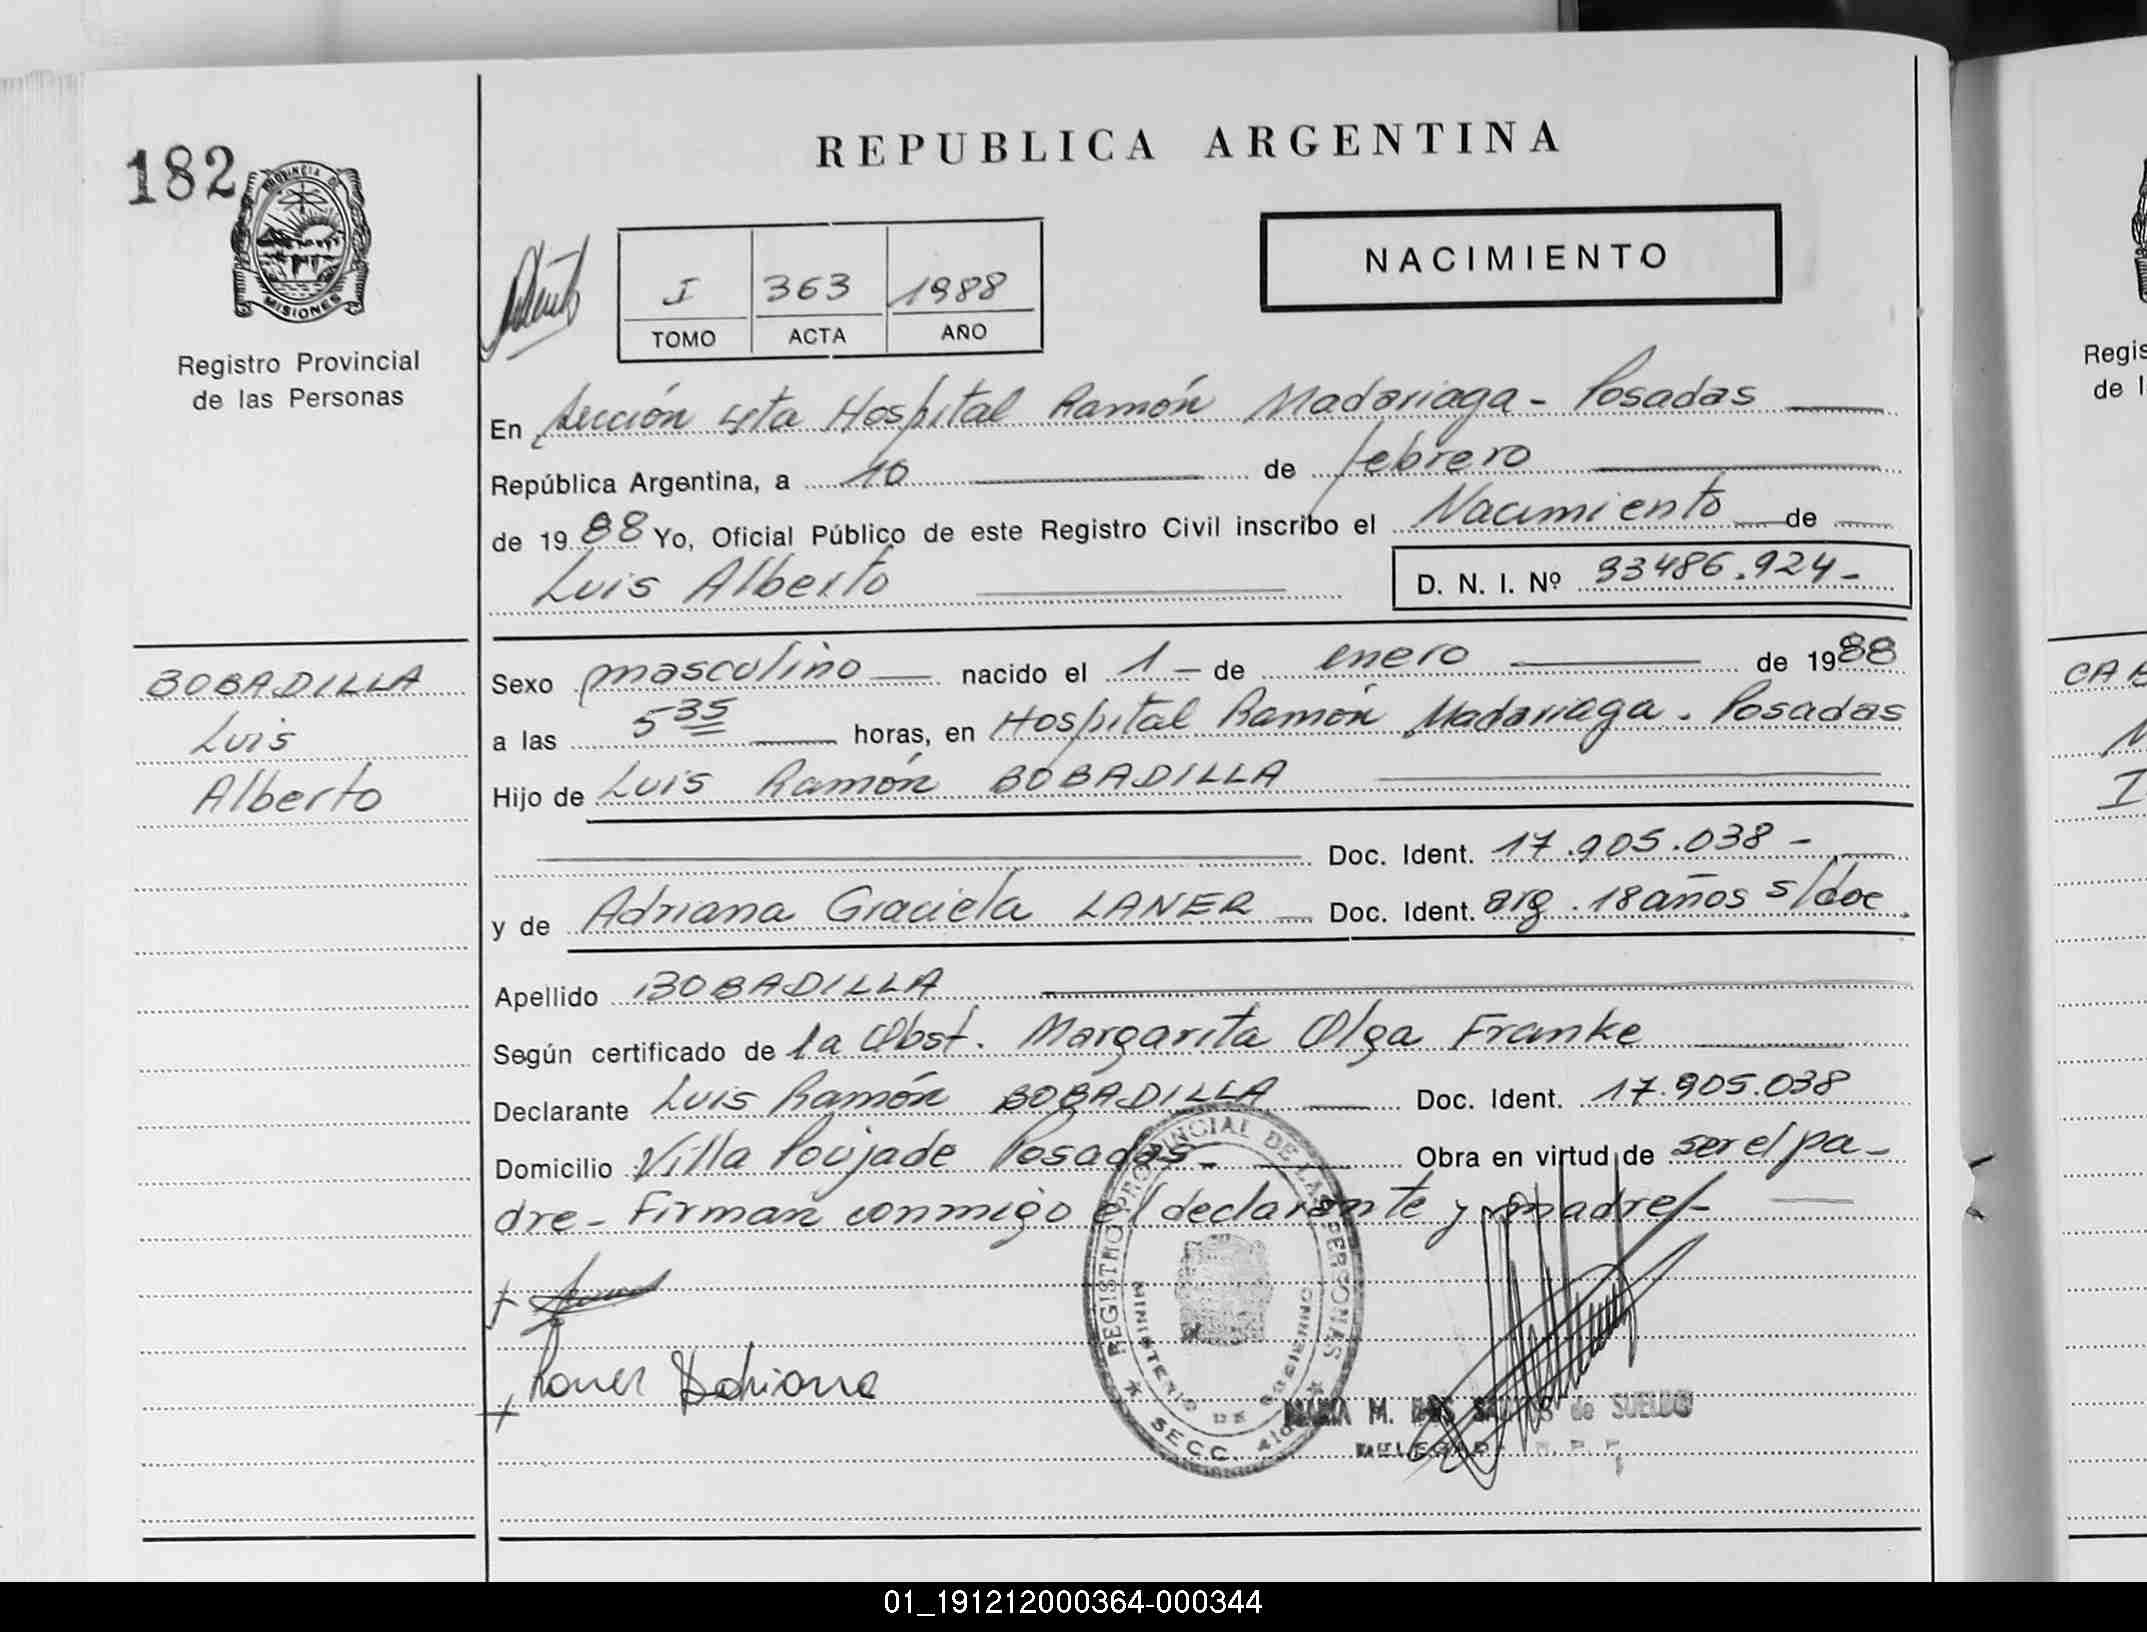 182
PROVINCIA DE
MISIONES
Registro Provincial
de las Personas
BOBADILLA
Luis
Alberto
REPUBLICA ARGENTINA
I 363 1988
TOMO ACTA AÑO
NACIMIENTO
En Sección 4ta Hospital Ramón Madariaga - Posadas
República Argentina, a 10 de febrero
de 1988 Yo, Oficial Público de este Registro Civil inscribo el Nacimiento de
Luis Alberto
D. N. I. Nº 33486.924-
Sexo masculino nacido el 1 - de enero de 1988
a las 5 35 horas, en Hospital Ramón Madariaga. Posadas
Hijo de Luis Ramón BOBADILLA
Doc. Ident. 17.905.038 -
y de Adriana Graciela LANER Doc. Ident. arg. 18 años s/doc.
Apellido BOBADILLA
Según certificado de la Obst. Margarita Olga Franke
Declarante Luis Ramón BOBADILLA Doc. Ident. 17.905.038
Domicilio Villa Poujade Posadas - Obra en virtud de ser el pa-
dre - Firman conmigo el declarante y madre/-
Laner Adriana
REGISTRO PROVINCIAL DE LAS PERSONAS
MINISTERIO DE GOBIERNO
SECC. 4ta
MARIA M. DOS SANTOS de SUELDO
Regis
de l
CAB
I
01_191212000364-000344